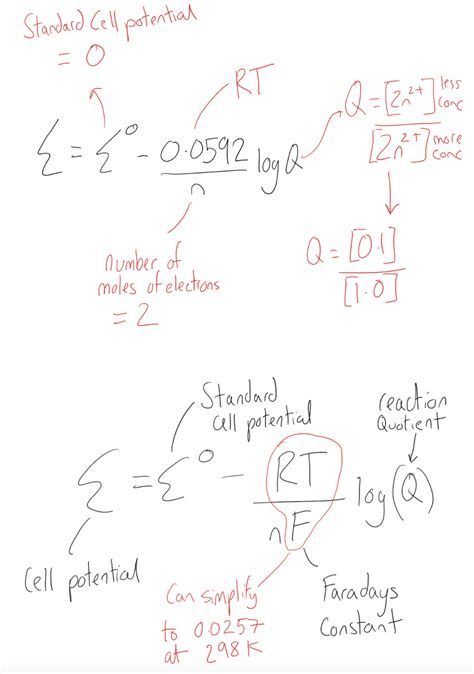 Standard Cell potential
= 0
RT
Q = [Zn²⁺] less conc
[Zn²⁺] more conc
Ɛ = Ɛ⁰ - 0.0592 log Q
n
number of
moles of electrons
= 2
Q = [0.1]
[1.0]
Standard
Cell potential
reaction
Quotient
Ɛ = Ɛ⁰ - RT log(Q)
nF
Cell potential
Can simplify
to 0.0257
at 298K
Faradays
Constant